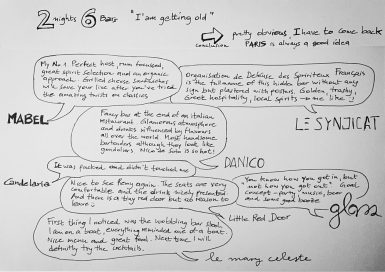 2 nights 6 Bars "I'am getting old"
pretty obvious, I have to come back
conclusion PARIS is always a good idea
My No 1 Perfect host, rum focused,
great spirit selection and an organic
approach. Grilled cheese sandwiches
will save your live after you've tried
the amazing twists on classics
MABEL
Organisation de Défense des Spiritueux Français
is the full name of this hidden bar without any
sign but plastered with posters. Golden, trashy,
Great hospitality, local spirits
me like!
LE SYNDICAT
Fancy bar at the end of an Italian
restaurant. Glamorous atmosphere
and drinks influenced by flavours
all over the world. Most handsome
bartenders although they look like
gondoliers. Nico de Soto is so hot!
DANICO
It was packed and didn't touched me
Candelaria
Nice to see Remy again. The seats are very
comfortable and the drink nicely presented
And there is a tiny red door but no reason to
leave
Little Red Door
You know how you got in, but
not how you got out" Goal
concept - party, music, beer
and some good booze
glass
First thing I noticed was the wobbling bar stool
I am on a boat, everything reminded me of a boat.
Nice menu and great food. Next time I will
definitly try the cocktails.
le mary celeste